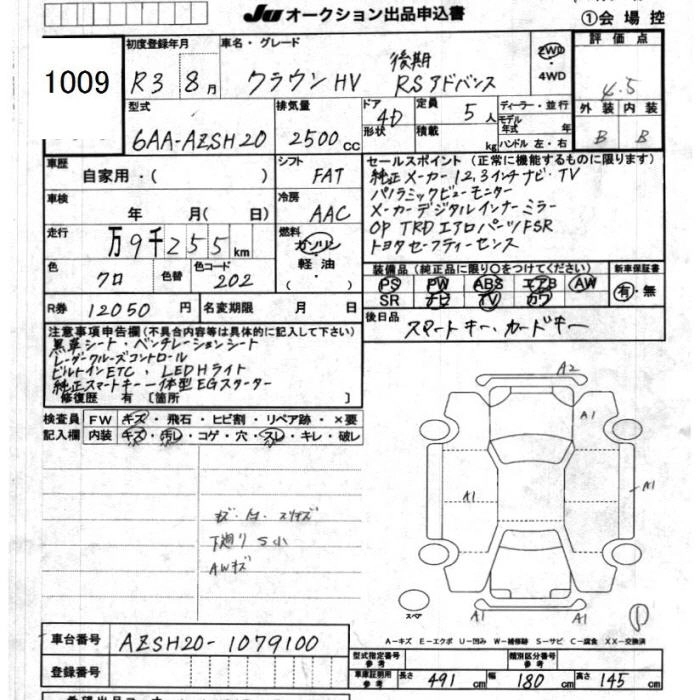 JU オークション出品申込書
①会場控
1009
初度登録年月
R3 8月
車名・グレード
後期
クラウンHV RSアドバンス
2WD
・4WD
評価点
4.5
外装 内装
B B
型式
6AA-AZSH20
排気量
2500cc
ドア
形状
4D
定員 5人
積載 kg
ディーラー・並行
モデル年式 年
ハンドル 左・右
車歴
自家用・( )
シフト
FAT
車検
年 月( 日)
冷房
AAC
走行
万9千255km
燃料
ガソリン
・軽油・
( )
色
クロ
色替
色コード
202
セールスポイント(正常に機能するものに限ります)
純正メーカー12,3インチナビ・TV
パノラミックビューモニター
メーカーデジタルインナーミラー
OP TRDエアロパーツFSR
トヨタセーフティーセンス
装備品(純正品に限り○をつけてください)
PS PW ABS エアB AW
SR ナビ TV カワ
新車保証書
有・無
R券 12050円
名変期限 月 日
後日品
スマートキー、カードキー
注意事項申告欄(不具合内容等は具体的に記入して下さい)
黒革シート・ベンチレーションシート
レーダークルーズコントロール
ビルトインETC、LEDHライト
純正スマートキー一体型EGスターター
修復歴 有 [箇所 ]
検査員 FW キズ・飛石・ヒビ割・リペア跡・×要
記入欄 内装 キズ・汚レ・コゲ・穴・スレ・キレ・破レ
A2
A1
A1
A1
A1
A1
下廻りS小
AWキズ
スペア
A−キズ E−エクボ U−凹み W−補修跡 S−サビ C−腐食 XX−交換済
車台番号 AZSH20-1079100
登録番号
型式指定番号
参考
類別区分番号
参考
車庫証明用
参考
長さ 491cm 幅 180cm 高さ 145cm